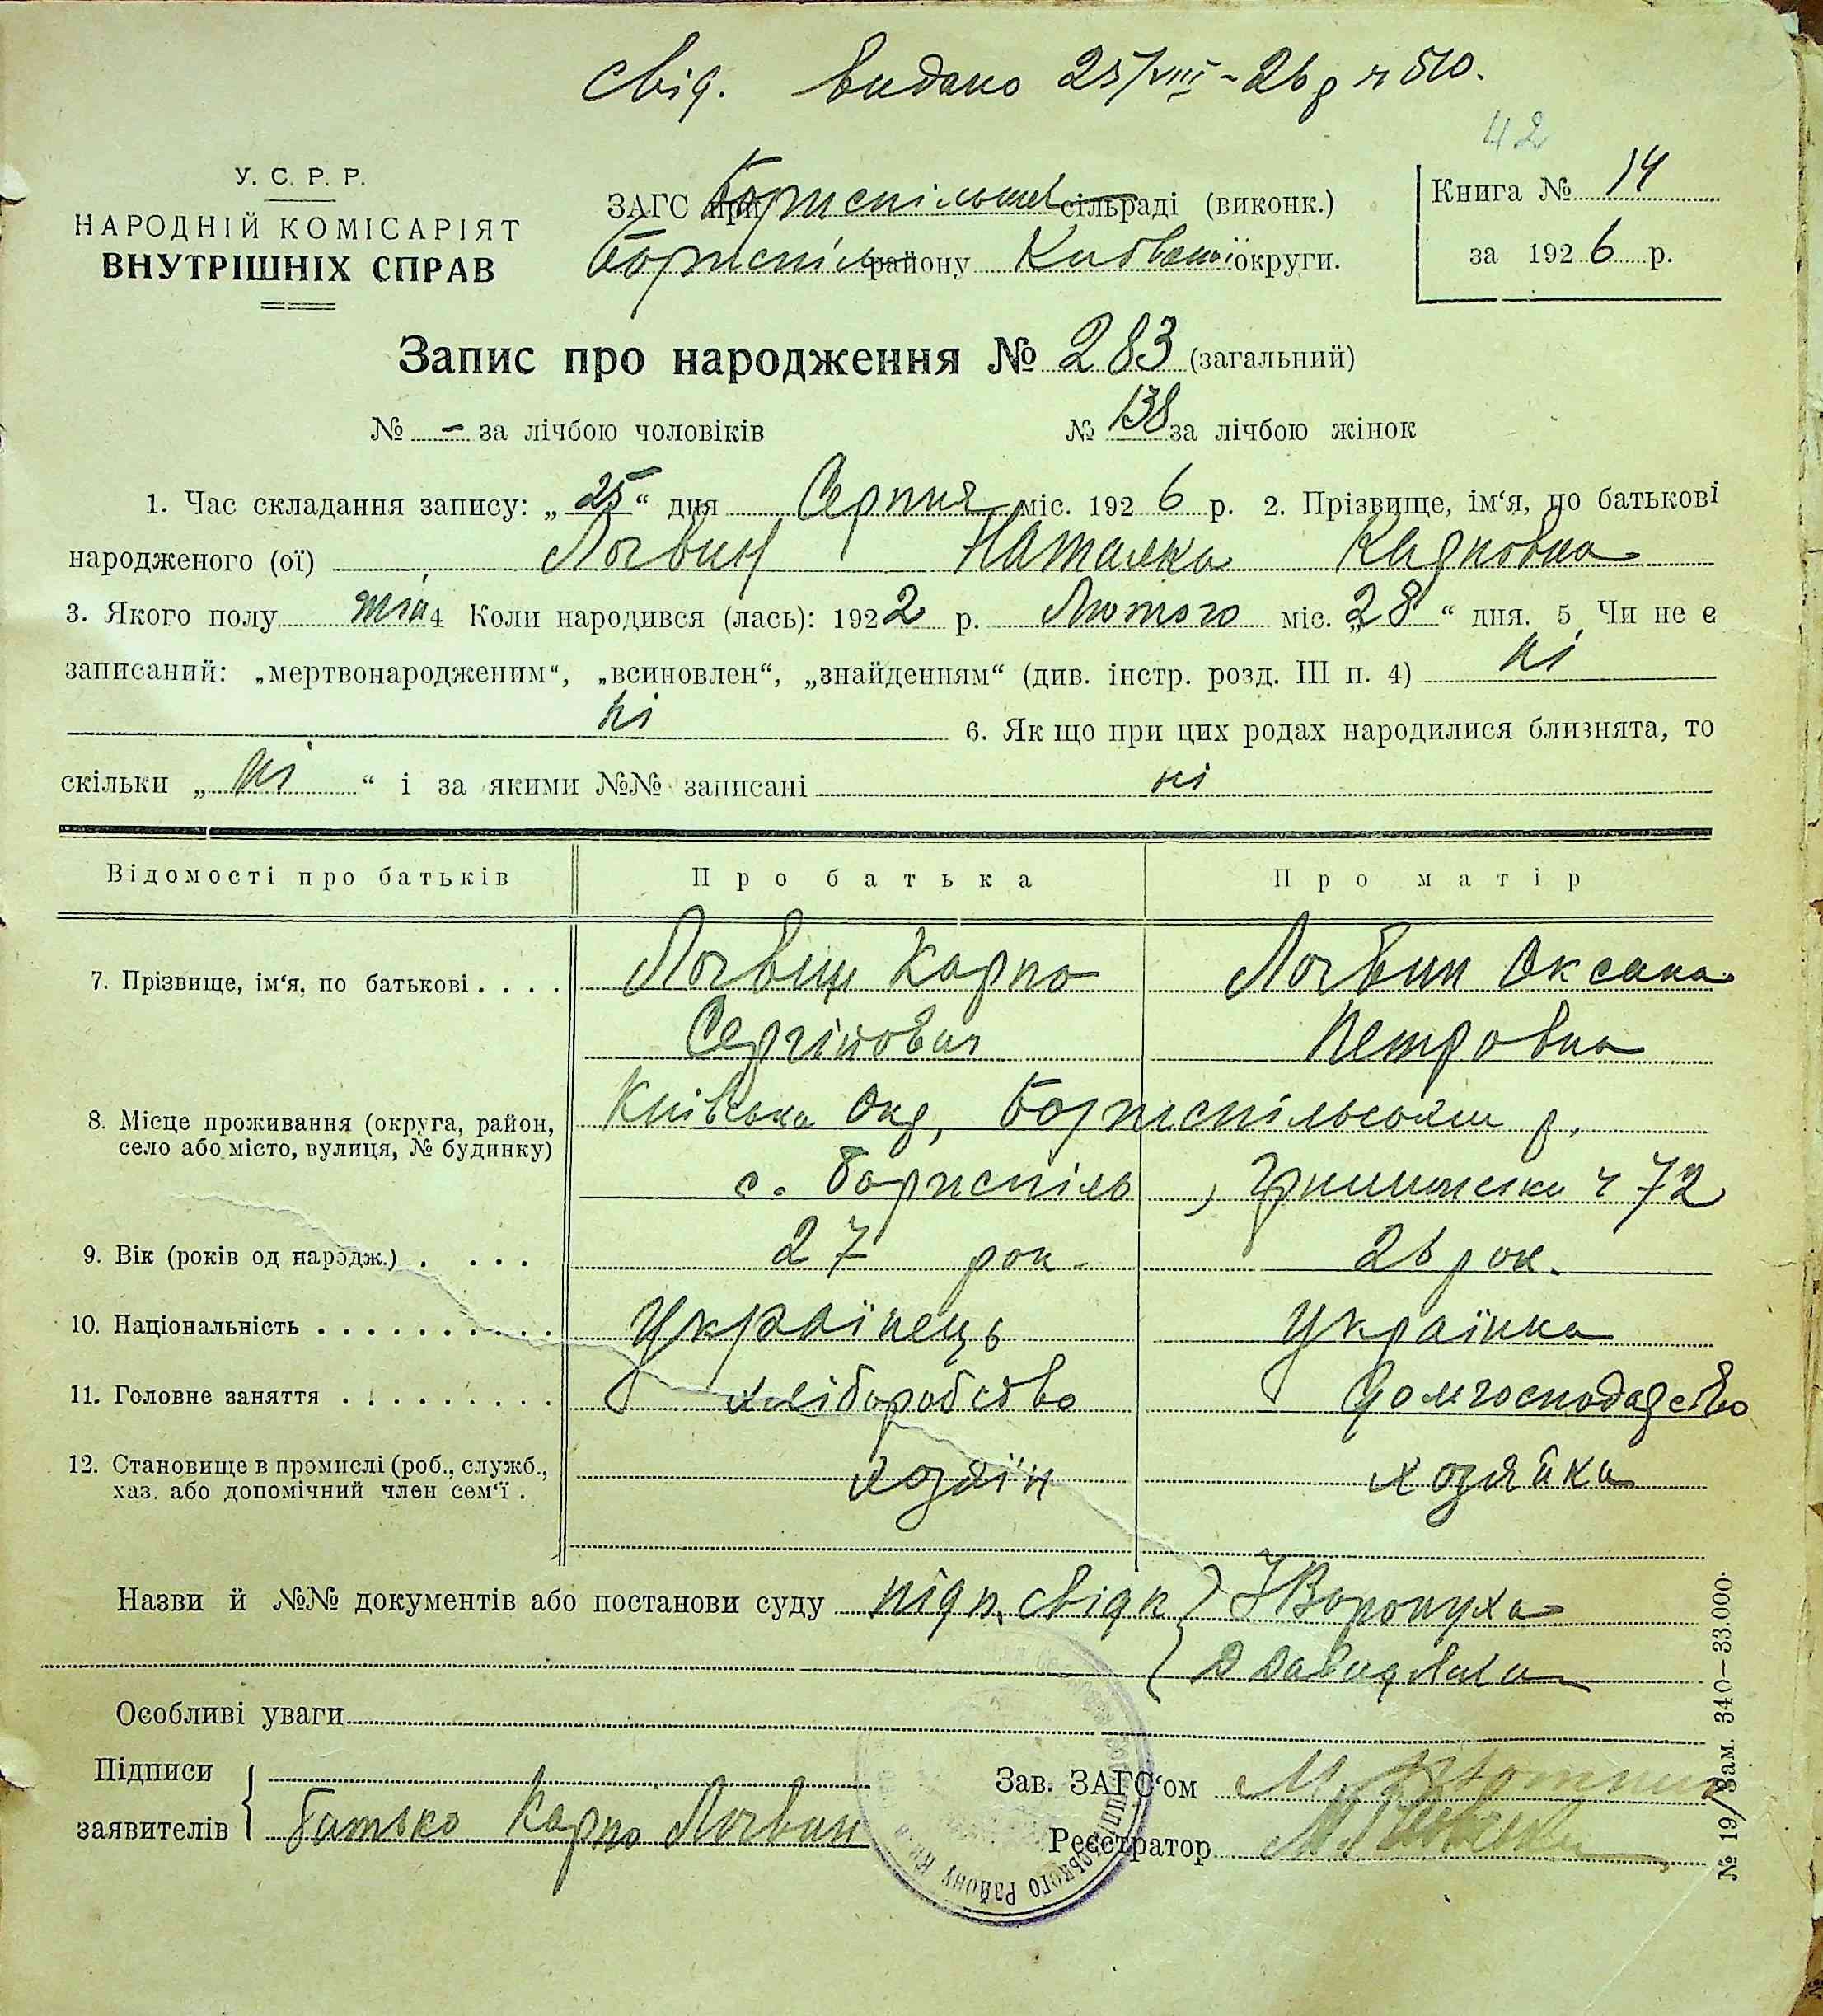 свід. видано 25/VIII-26 р ч 510.
42
У. С. Р. Р.
НАРОДНІЙ КОМІСАРІЯТ
ВНУТРІШНІХ СПРАВ
ЗАГС при Бориспільськ сільраді (виконк.)
Бориспіль району Київської округи.
Книга № 14
за 1926 р.
Запис про народження № 283 (загальний)
№ - за лічбою чоловіків № 138 за лічбою жінок
1. Час складання запису: „25“ дня Серпня міс. 1926 р. 2. Прізвище, ім‘я, по батькові
народженого (ої) Логвин Наталка Карповна
3. Якого полу жін 4 Коли народився (лась): 1922 р. Лютого міс. „28“ дня. 5 Чи не є
записаний: „мертвонародженим“, „всиновлен“, „знайденням“ (див. інстр. розд. III п. 4) ні
ні 6. Як що при цих родах народилися близнята, то
скільки „ні“ і за якими №№ записані ні
Відомості про батьків Про батька Про матір
7. Прізвище, ім‘я, по батькові . . . . Логвин Карпо Логвин Оксана
Сергійович Петровна
8. Місце проживання (округа, район, село або місто, вулиця, № будинку) Київська Окр, Бориспільський р,
с. Бориспіль, ч 72
9. Вік (років од народж.) . . . . 27 рок. 26 рок.
10. Національність . . . . . . . . . . Українець Українка
11. Головне заняття . . . . . . . . . . хліборобство Домгосподарство
12. Становище в промислі (роб., служб., хаз. або допомічний член сем‘ї . хозяїн хозяйка
Назви й №№ документів або постанови суду підп. свідк } Воропуха
Особливі уваги
Підписи
заявителів { батько Карпо Логвин
Зав. ЗАГС‘ом М.
Реєстратор М.
№ 19/Зам. 340—33.000.